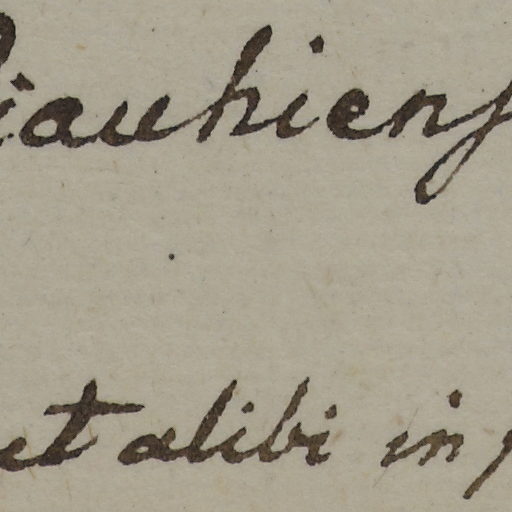 iauhiens
et alibi in